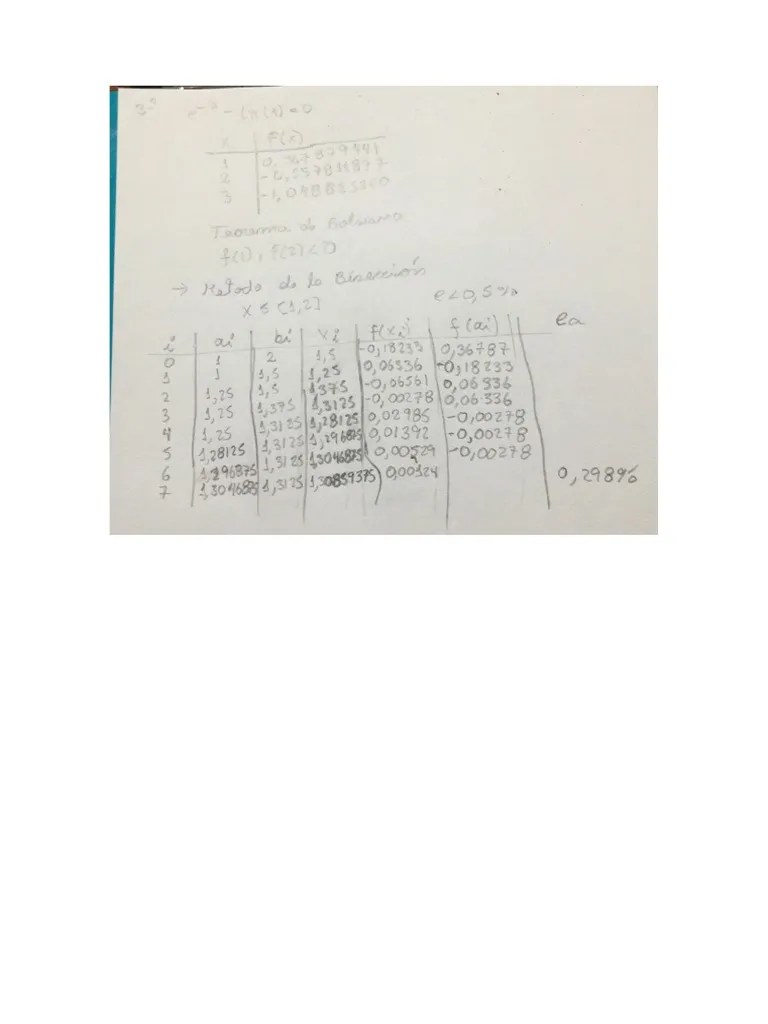 3-
e^-x - ln(x) = 0
x | F(x)
1 | 0,367879441
2 | -0,557811877
3 |
Teorema de Bolzano
f(1) . f(2) < 0
→ Metodo de la Bisección
X ϵ [1,2] e<0,5%
i | ai | bi | Xi | f(xi) | f(ai) | ea
0 | 1 | 2 | 1,5 | -0,18233 | 0,36787
1 | 1 | 1,5 | 1,25 | 0,06336 | -0,18233
2 | 1,25 | 1,5 | 1,375 | -0,06561 | 0,06336
3 | 1,25 | 1,375 | 1,3125 | -0,00278 | 0,06336
4 | 1,25 | 1,3125 | 1,28125 | 0,02985 | -0,00278
5 | 1,28125 | 1,3125 | 1,296875 | 0,01392 | -0,00278
6 | 1,296875 | 1,3125 | 1,3046875 | 0,00529 | -0,00278
7 | 1,3046875 | 1,3125 | 1,30859375 | 0,00124 | 0,298%